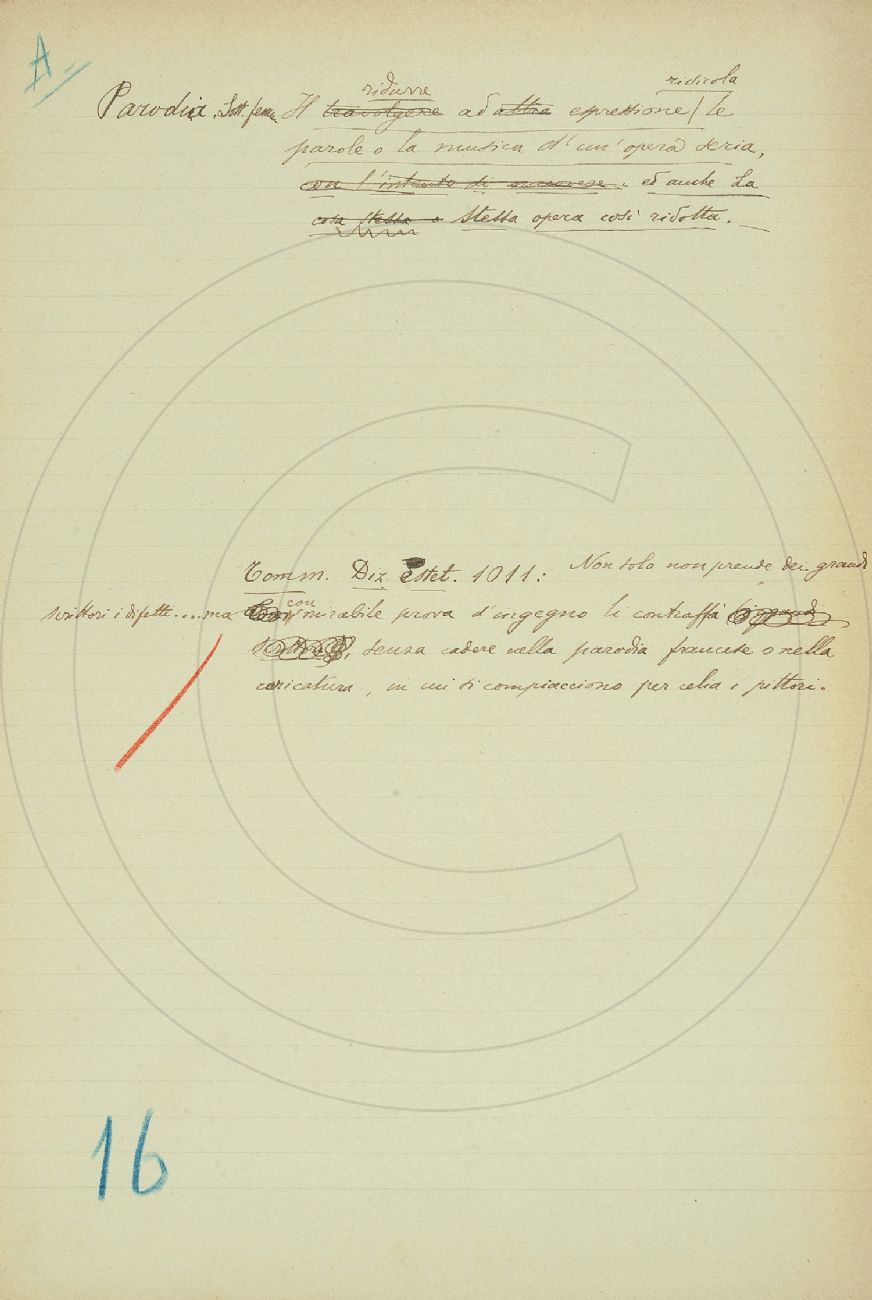 A
ridurre ridicola
Parodia. Sost. fem. Il travolgere ad altra espressione le
parole o la musica d'un'opera seria,
con l'intento di muovere ed anche La
cosa stessa o stessa opera così ridotta.
Tomm. Diz. estet. 1011: Non solo non prende dei grandi
con
scrittori i difetti....ma mirabile prova d'ingegno li contraffà
senza cadere nella parodia francese o nella
caricatura, in cui si compiacciono per celia i pittori.
16